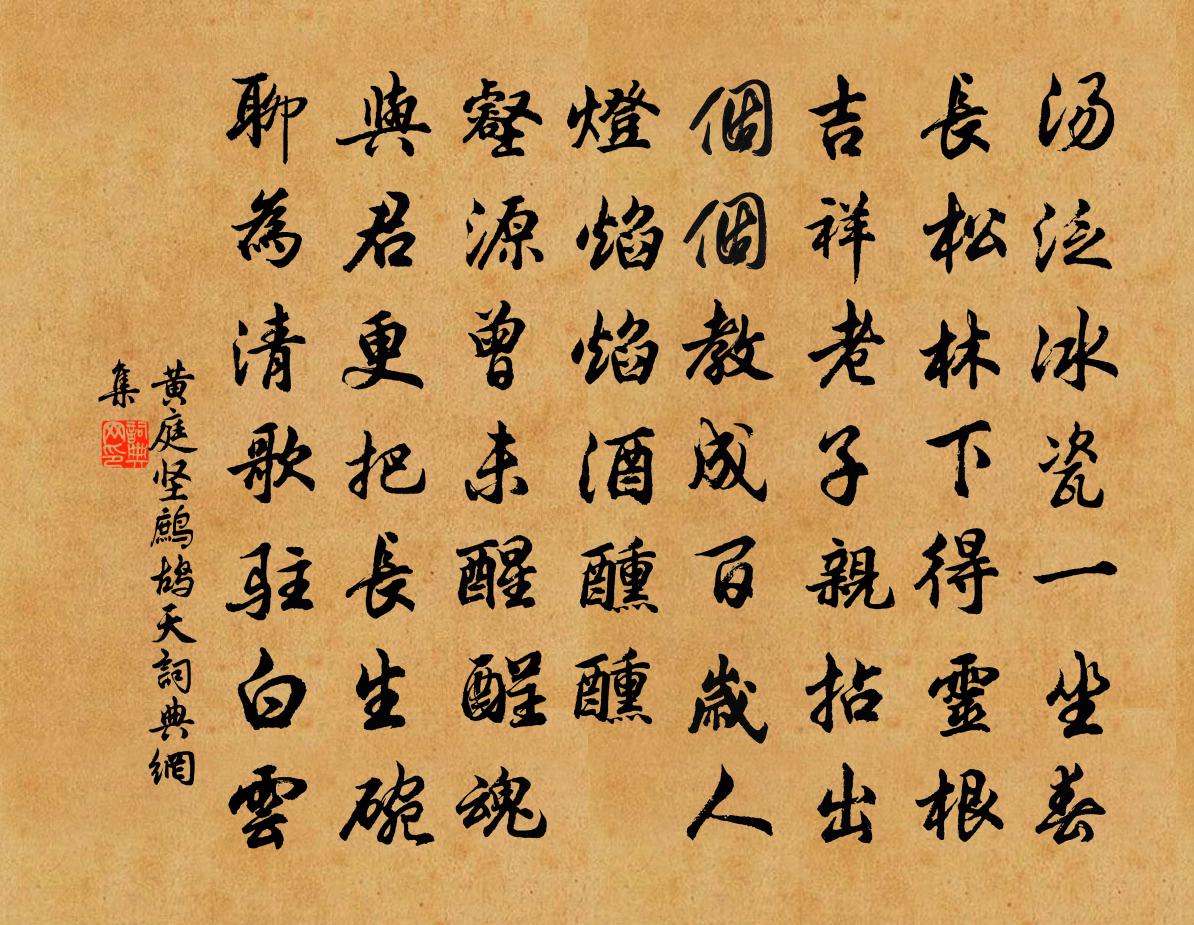 汤泛冰瓷一坐春
長松林下得靈根
吉祥老子親拈出
個個教成百歲人
燈焰焰酒醺醺
壑源曾未醒酲魂
與君更把長生碗
聊為清歌駐白雲
黄庭坚鹧鸪天詞典網
集
詞典
网印